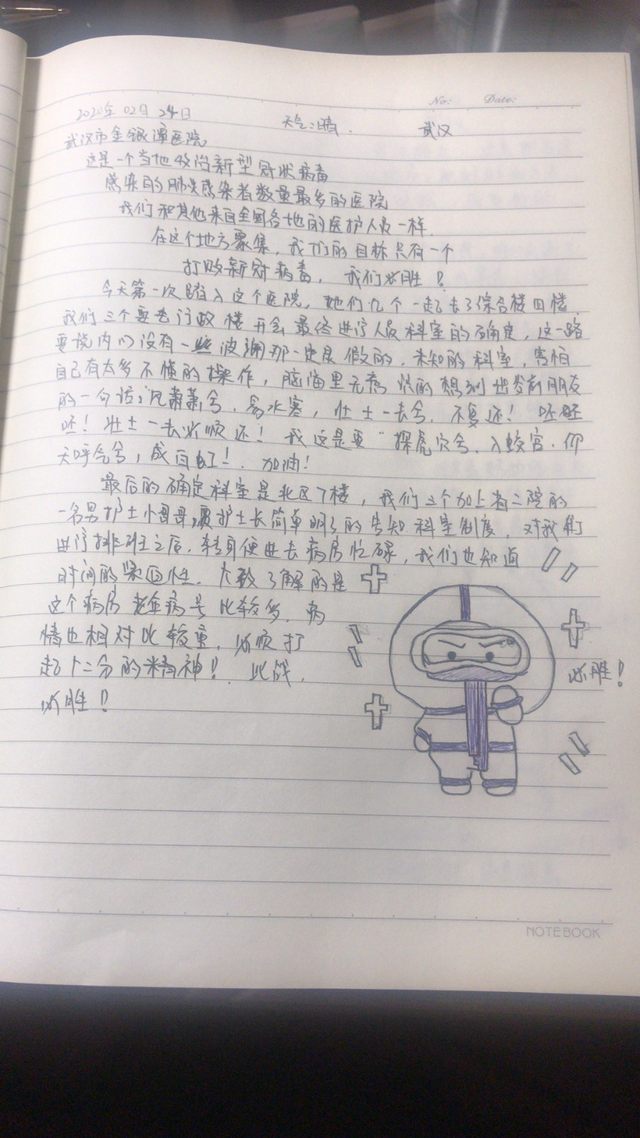 No: Date:
2020年 02月 24日 天气：晴. 武汉
武汉市金银潭医院
这是一个当地收治新型冠状病毒
感染的肺炎感染者数量最多的医院
我们和其他来自全国各地的医护人员一样.
在这个地方聚集，我们的目标只有一个
打败新冠病毒，我们必胜！
今天第一次踏入这个医院，她们几个一起去了综合楼四楼，
我们三个要去行政楼开会 最终进行人员科室的确定，这一路
要说内心没有一些波澜那一定是假的，未知的科室，害怕
自己有太多不懂的操作，脑海里 的想到出发前朋友
的一句话：风萧萧兮，易水寒，壮士一去兮，不复还！呸呸
呸！壮士一去必须还！我这是要"探虎穴兮，入蛟宫，仰
天呼气兮，成白虹！. 加油！
最后的确定科室是北区7楼，我们3个加上省二院的
一名男护士小哥哥，护士长简单明了的告知科室制度，对我们
进行排班之后，转身便进去病房忙碌，我们也知道
时间的紧迫性. 大致了解的是
这个病房 老年病号 比较多，病
情也相对比较重，必须打
起十二分的精神！ 此战， 必胜！
必胜！
NOTEBOOK